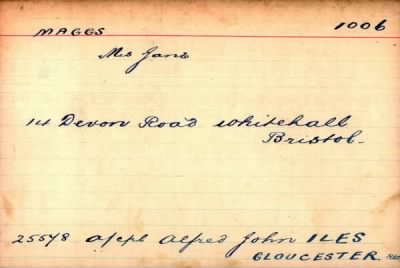 MAGGS 1006
Mrs Jane
14 Devon Road Whitehall
Bristol.
25578 A/Cpl Alfred John ILES
GLOUCESTER